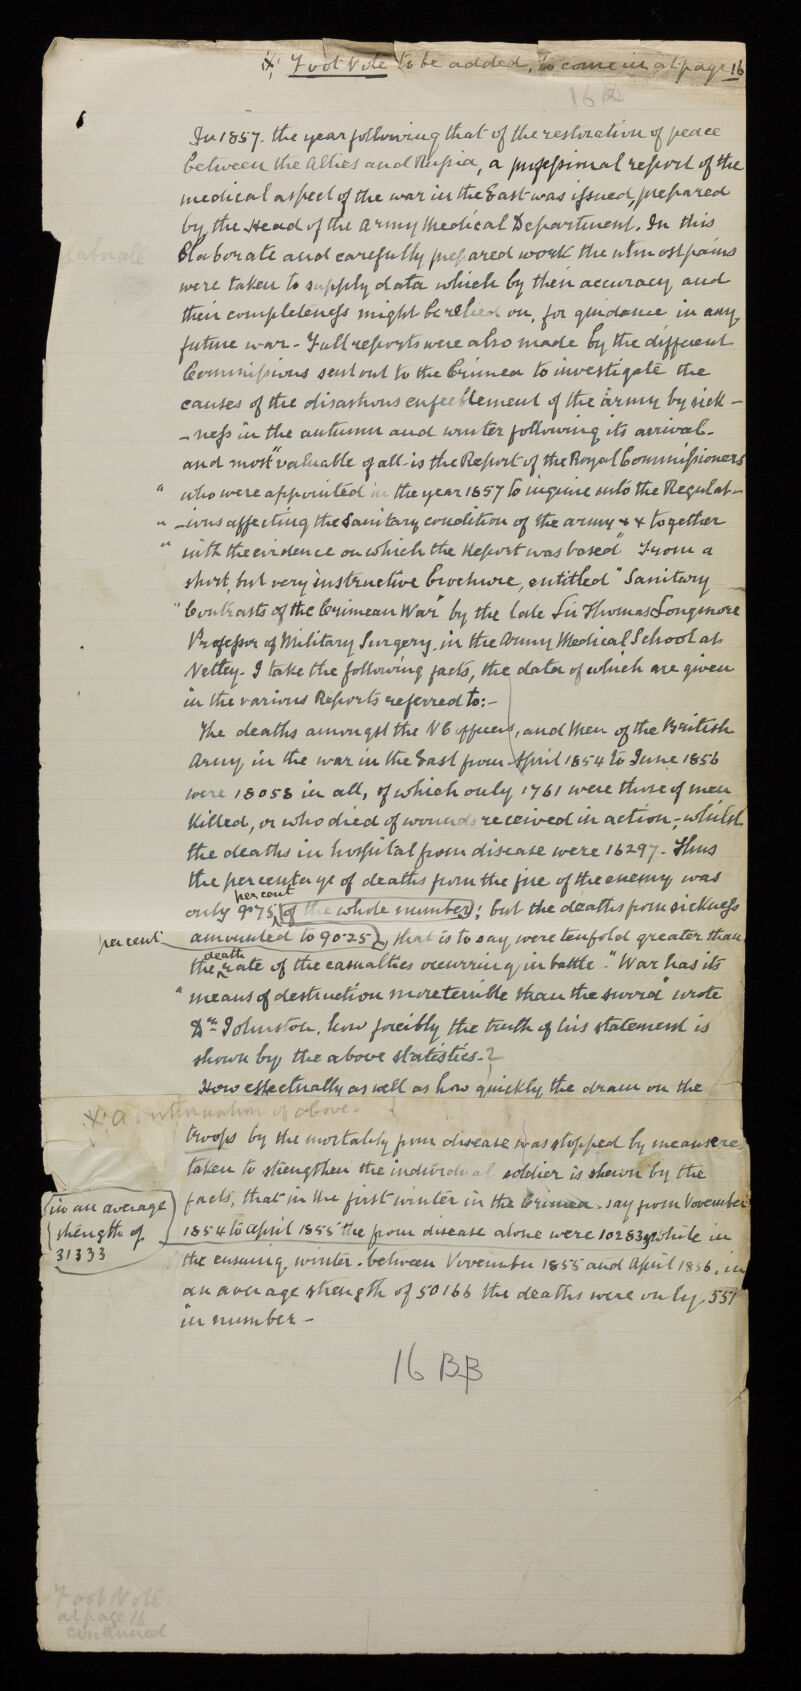 X, Foot Note to be added, to come in at page 16
16
In 1857. the year following that of the restoration of peace
between the Allies and Russia, a professional report of the
medical aspect of the war in the East was issued, prepared
by the Head of the Army Medical Department. In this
Elaborate and carefully prepared work the utmost pains
were taken to supply data which by their accuracy and
their completeness might be relied on, for guidance in any
future war - Full reports were also made by the different
Commissions sent out to the Crimea to investigate the
causes of the disastrous enfeeblement of the army by sick -
- ness in the autumn and winter following its arrival -
and most "valuable of all - is the Report of the Royal Commissioners
" who were appointed in the year 1857 to inquire into the Regulat -
" - ions affecting the Sanitary condition of the army + + together
" with the evidence on which the Report was based" From a
short, but very instructive brochure, entitled "Sanitary
"Contrasts of the Crimean War" by the late Sir Thomas Longmore
Professor of Military Surgery, in the Army Medical School at
Netley - I take the following facts, the data of which are given
in the various Reports referred to:-
The deaths amongst the NC officers, and Men of the British
Army in the war in the East from April 1854 to June 1856
were 18058 in all, of which only 1761 were those of men
killed, or who died of wounds received in action, - whilst
the deaths in hospital from disease were 16297 - Thus
the percentage of deaths from the fire of the enemy was
per cent
only 9.75 (of the whole number); but the deaths from sickness
per cent amounted to 90.25, that is to say were tenfold greater than
death
the rate of the casualties occurring in battle - "War has its
" means of destruction more terrible than the sword" wrote
Dr. Johnston, how forcibly the truth of his statement is
shown by the above statistics - ?
How effectually as well as how quickly the drain on the
X, a continuation of above.
troops by the mortality from disease was stopped by measures
taken to strengthen the individual soldier is shewn by the
facts, that in the first winter in the Crimea - say from November
in an average
strength of
31333
1854 to April 1855 the from disease alone were 10283 while in
the ensuing winter - between November 1855 and April 1856, in
an average strength of 50166 the deaths were only 551
in number -
16 BB
Foot Note
at page 16
continued